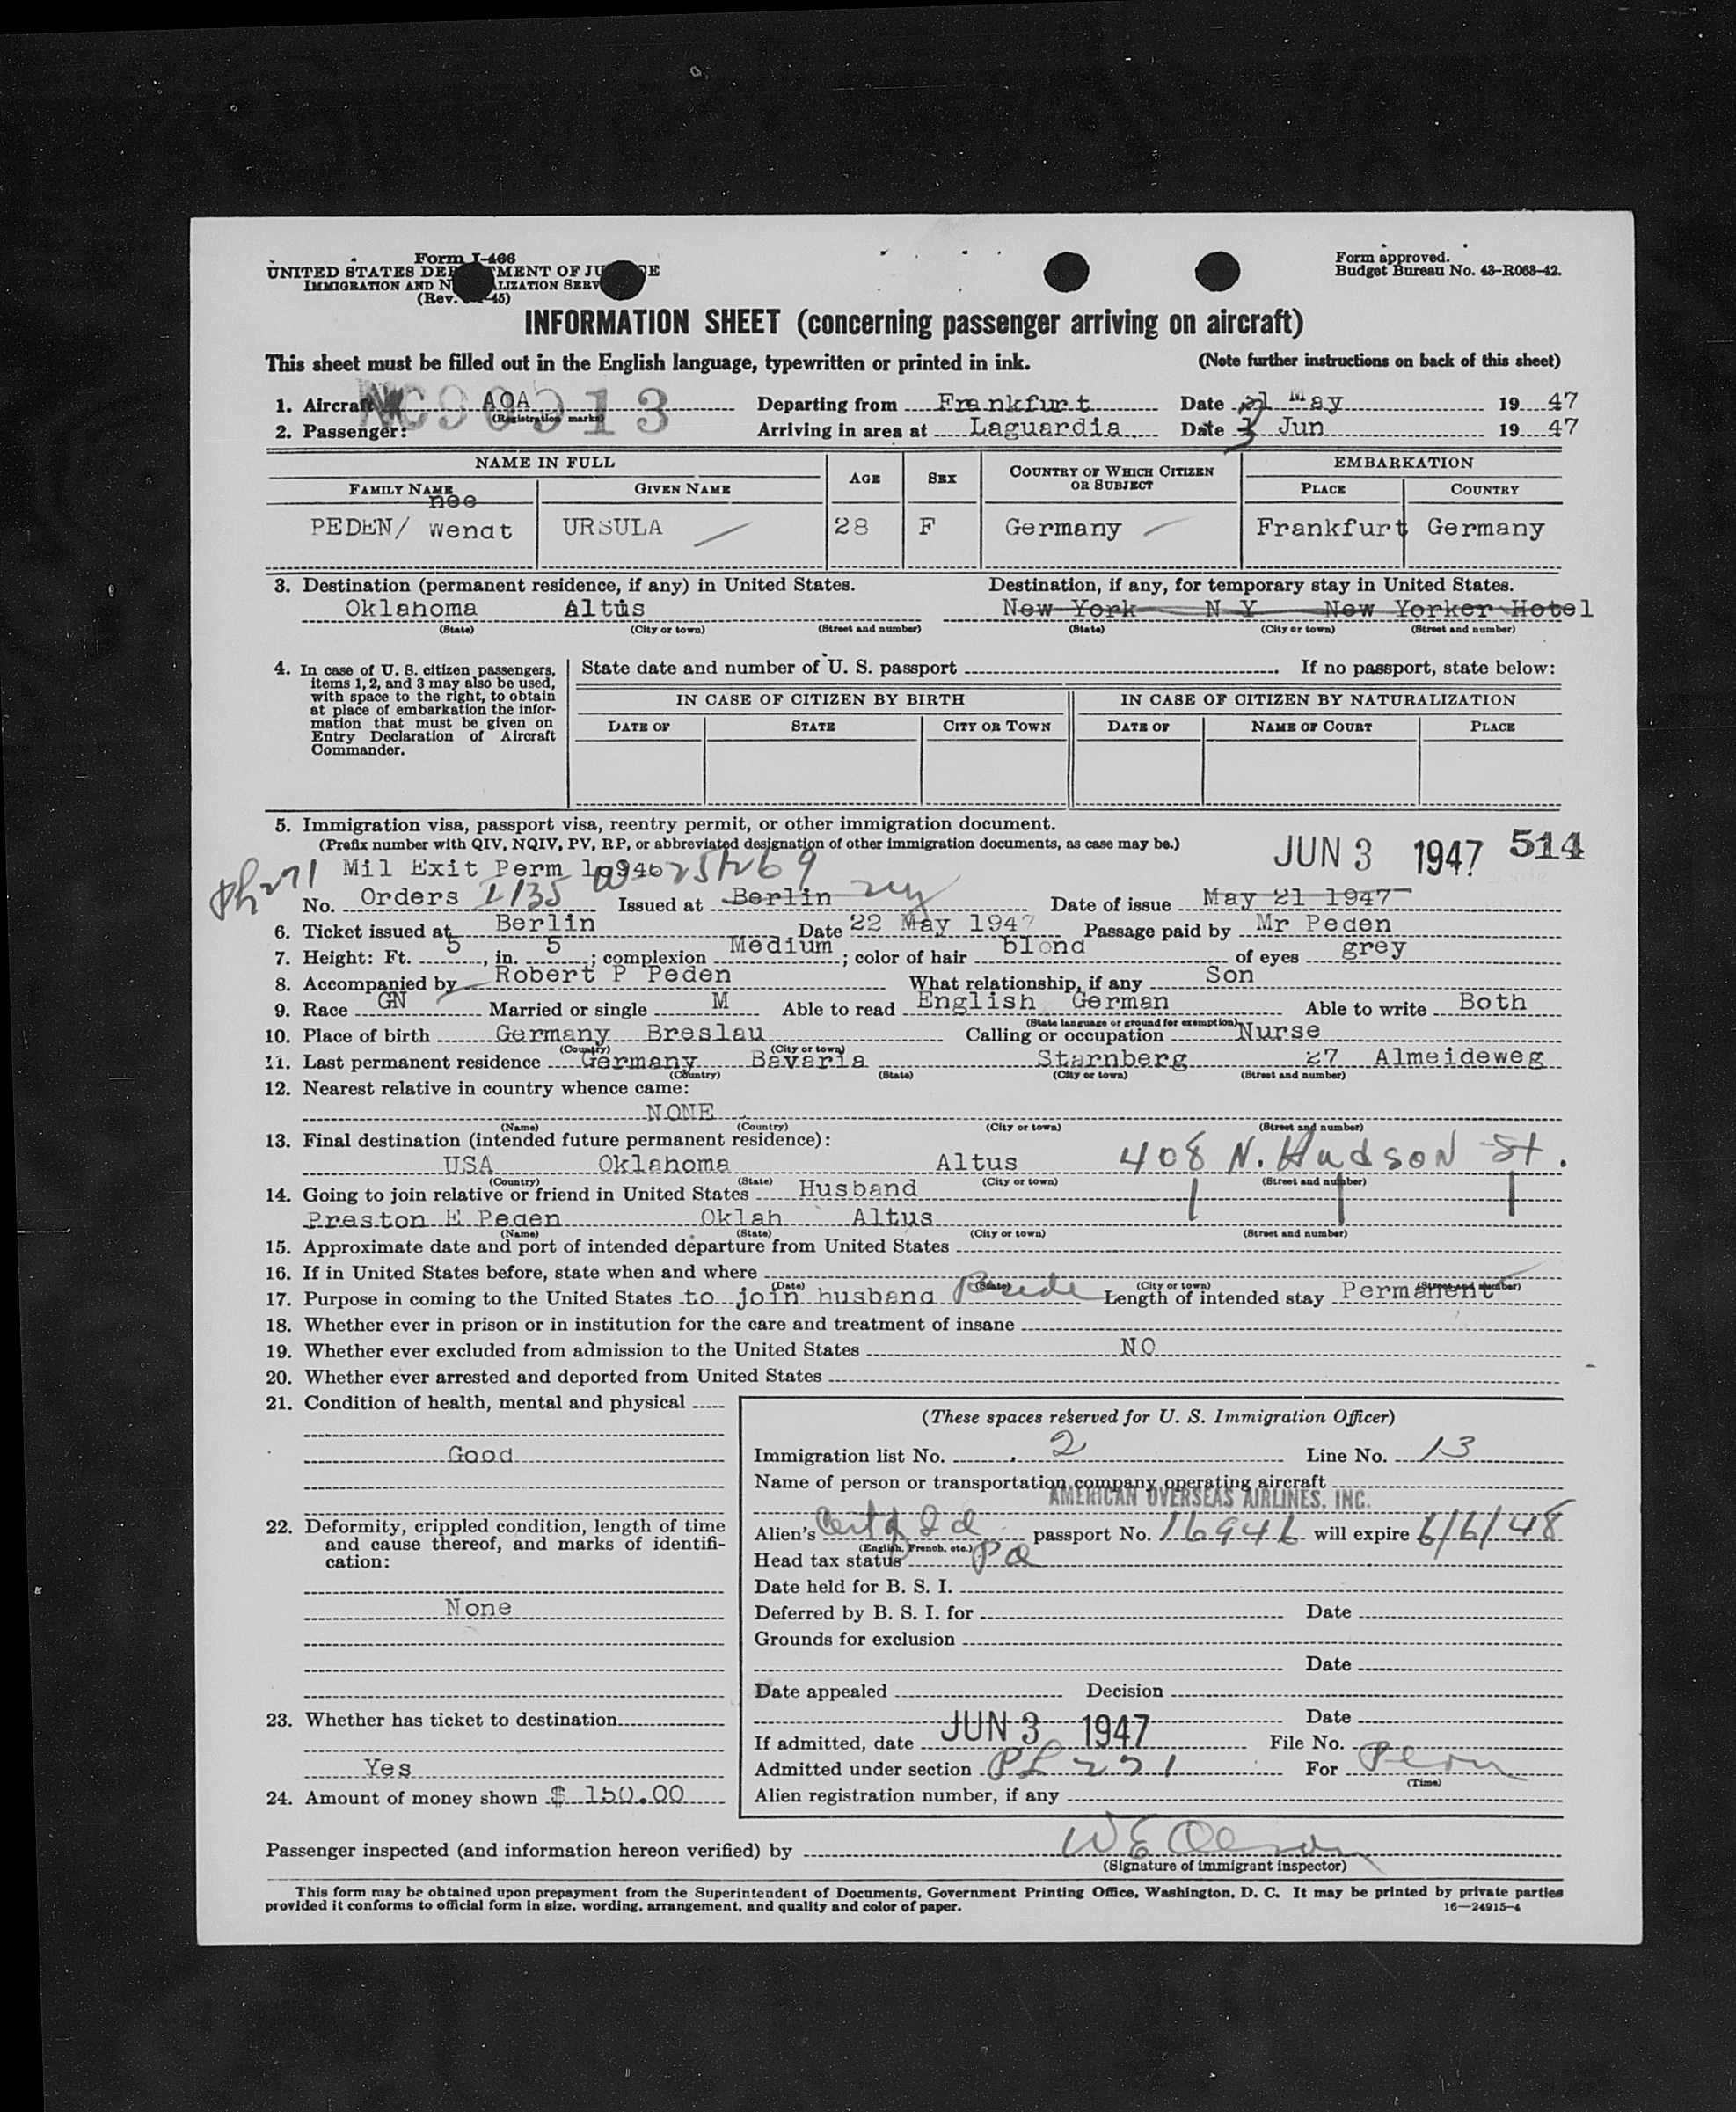 Form I-466
UNITED STATES DEP MENT OF JU E
IMMIGRATION AND N LIZATION SERV
(Rev. 45)
Form approved.
Budget Bureau No. 43-R068-42.
INFORMATION SHEET (concerning passenger arriving on aircraft)
This sheet must be filled out in the English language, typewritten or printed in ink. (Note further instructions on back of this sheet)
1. Aircraft AOA Departing from Frankfurt Date May 1947
(Registration marks)
2. Passenger: Arriving in area at Laguardia Date 3 Jun 1947
NAME IN FULL AGE SEX COUNTRY OF WHICH CITIZEN OR SUBJECT EMBARKATION
FAMILY NAME GIVEN NAME PLACE COUNTRY
nee
PEDEN/ Wendt URSULA 28 F Germany Frankfurt Germany
3. Destination (permanent residence, if any) in United States. Destination, if any, for temporary stay in United States.
Oklahoma Altus New York N Y New Yorker Hotel
(State) (City or town) (Street and number) (State) (City or town) (Street and number)
4. In case of U. S. citizen passengers, items 1, 2, and 3 may also be used, with space to the right, to obtain at place of embarkation the information that must be given on Entry Declaration of Aircraft Commander.
State date and number of U. S. passport If no passport, state below:
IN CASE OF CITIZEN BY BIRTH IN CASE OF CITIZEN BY NATURALIZATION
DATE OF STATE CITY OR TOWN DATE OF NAME OF COURT PLACE
5. Immigration visa, passport visa, reentry permit, or other immigration document.
(Prefix number with QIV, NQIV, PV, RP, or abbreviated designation of other immigration documents, as case may be.)
JUN 3 1947 514
Mil Exit Perm
No. Orders 1135 Issued at Berlin Date of issue May 21 1947
6. Ticket issued at Berlin Date 22 May 1947 Passage paid by Mr Peden
7. Height: Ft. 5, in. 5; complexion Medium; color of hair blond of eyes grey
8. Accompanied by Robert P Peden What relationship, if any Son
9. Race GN Married or single M Able to read English German Able to write Both
(State language or ground for exemption)
10. Place of birth Germany Breslau Calling or occupation Nurse
(Country) (City or town)
11. Last permanent residence Germany Bavaria Starnberg 27 Almeideweg
(Country) (State) (City or town) (Street and number)
12. Nearest relative in country whence came:
NONE
(Name) (Country) (City or town) (Street and number)
13. Final destination (intended future permanent residence):
USA Oklahoma Altus 408 N. Hudson St.
(Country) (State) (City or town) (Street and number)
14. Going to join relative or friend in United States Husband
Preston E Peden Oklah Altus
(Name) (State) (City or town) (Street and number)
15. Approximate date and port of intended departure from United States
16. If in United States before, state when and where
(Date) (State) (City or town) (Street and number)
17. Purpose in coming to the United States to join husband Bride Length of intended stay Permanent
18. Whether ever in prison or in institution for the care and treatment of insane
19. Whether ever excluded from admission to the United States NO
20. Whether ever arrested and deported from United States
21. Condition of health, mental and physical
Good
22. Deformity, crippled condition, length of time and cause thereof, and marks of identification:
None
23. Whether has ticket to destination
Yes
24. Amount of money shown $ 150.00
(These spaces reserved for U. S. Immigration Officer)
Immigration list No. 2 Line No. 13
Name of person or transportation company operating aircraft
AMERICAN OVERSEAS AIRLINES, INC.
Alien's Cert of Id passport No. 16946 will expire 6/6/48
(English, French, etc.)
Head tax status Pd
Date held for B. S. I.
Deferred by B. S. I. for Date
Grounds for exclusion
Date
Date appealed Decision
Date
If admitted, date JUN 3 1947 File No.
Admitted under section PL 271 For Perm
(Time)
Alien registration number, if any
Passenger inspected (and information hereon verified) by W E Olson
(Signature of immigrant inspector)
This form may be obtained upon prepayment from the Superintendent of Documents, Government Printing Office, Washington, D. C. It may be printed by private parties
provided it conforms to official form in size, wording, arrangement, and quality and color of paper. 16—24915-4